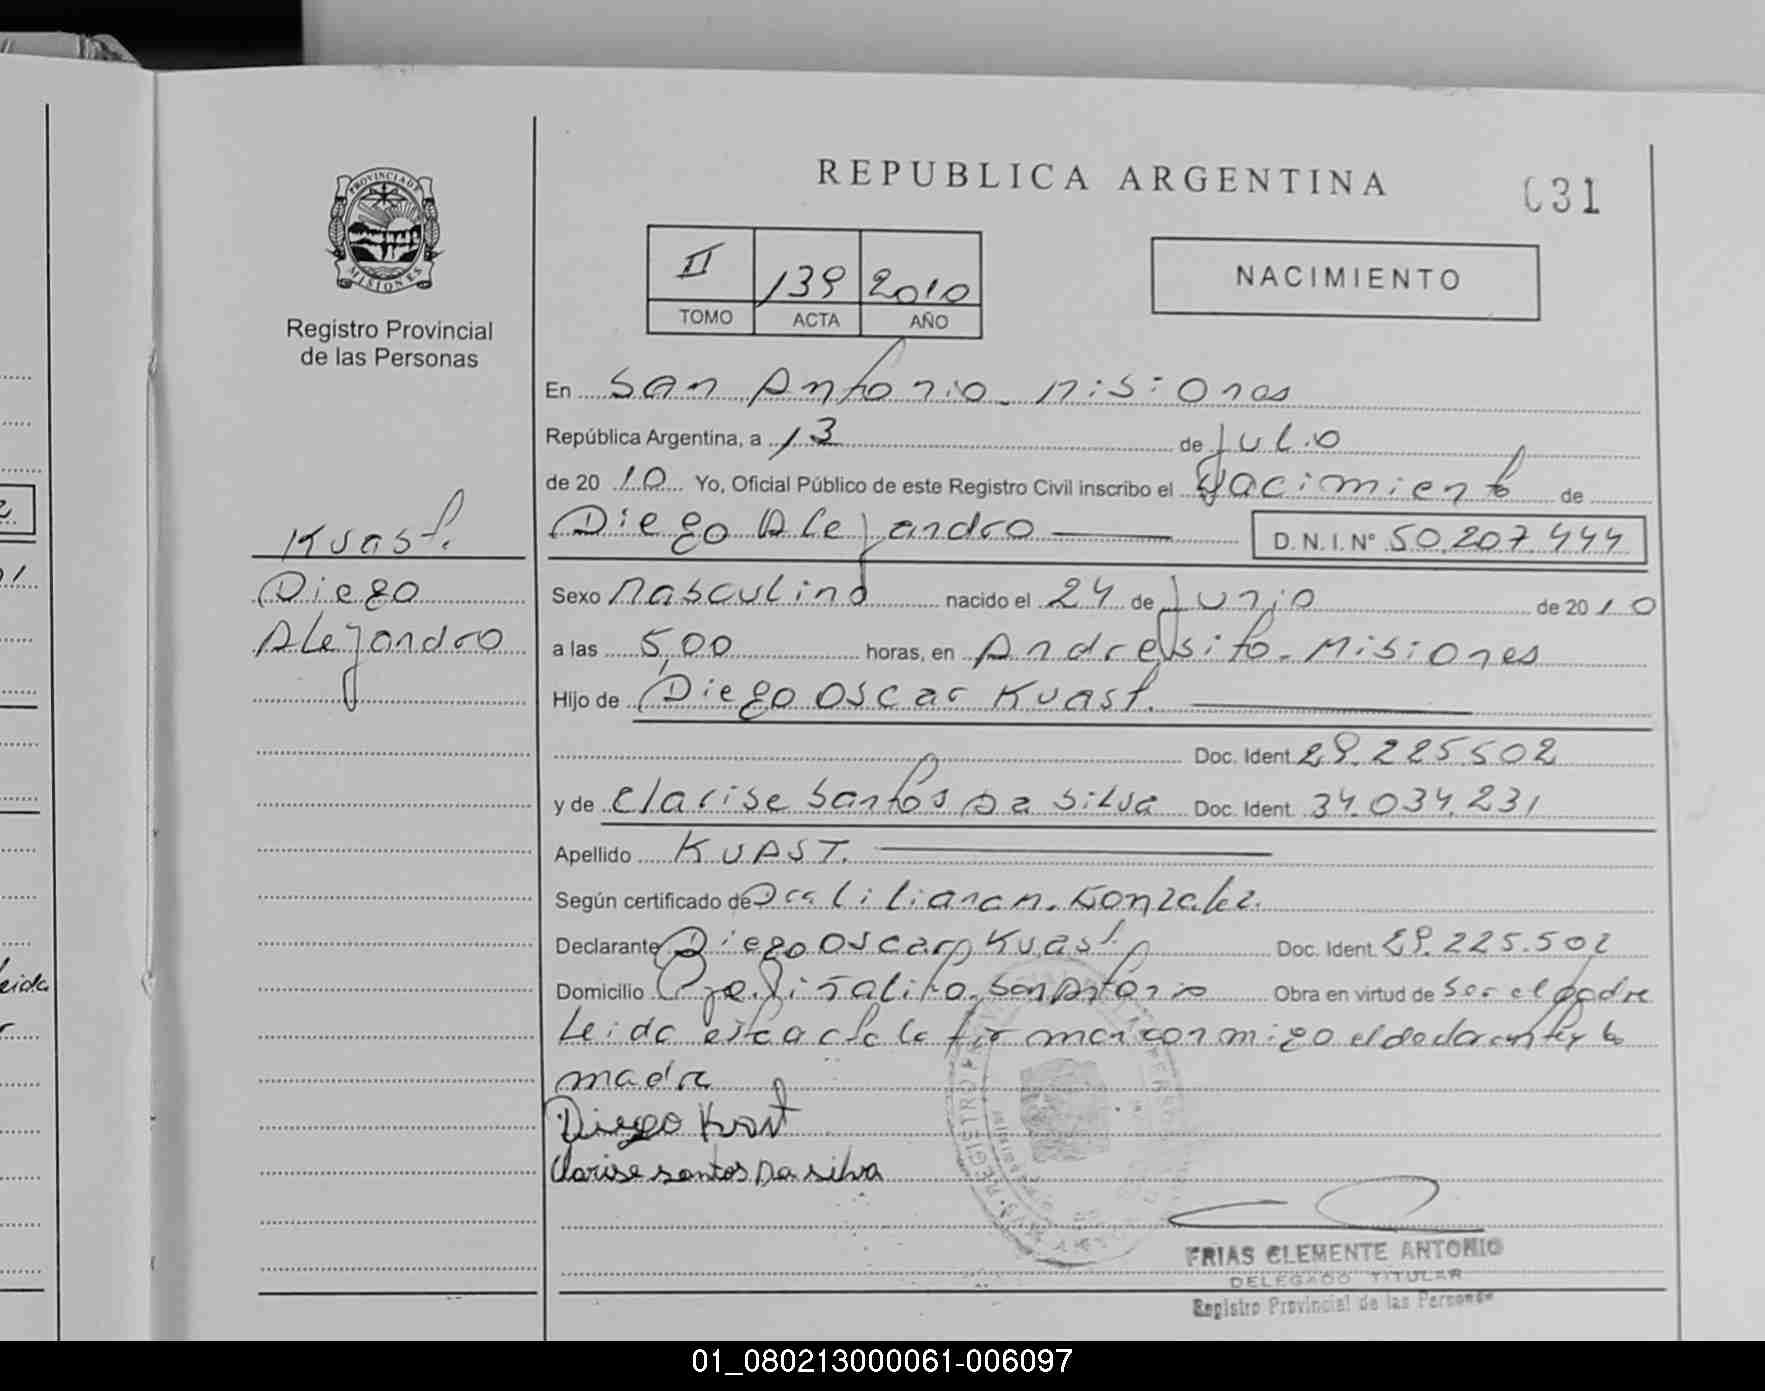 REPUBLICA ARGENTINA
031
PROVINCIA DE MISIONES
Registro Provincial
de las Personas
II 139 2010
TOMO ACTA AÑO
NACIMIENTO
Kuast.
Diego
Alejandro
En San Antonio - Misiones
República Argentina, a 13 de Julio
de 2010 Yo, Oficial Público de este Registro Civil inscribo el Nacimiento de
Diego Alejandro D.N.I. N° 50.207.444
Sexo Masculino nacido el 24 de Junio de 2010
a las 5,00 horas, en Andresito - Misiones
Hijo de Diego Oscar Kuast.
Doc. Ident. 29.225.502
y de Clarise Santos Da Silva Doc. Ident. 34.034.231
Apellido KUAST.
Según certificado de Dra Liliana M. Gonzalez.
Declarante Diego Oscar Kuast. Doc. Ident. 29.225.502
Domicilio San Antonio Obra en virtud de Ser el padre
Leida esta acta la firman conmigo el declarante y la
madre
Diego Kuast
Clarise santos Da silva
FRIAS CLEMENTE ANTONIO
DELEGADO TITULAR
Registro Provincial de las Personas
01_080213000061-006097